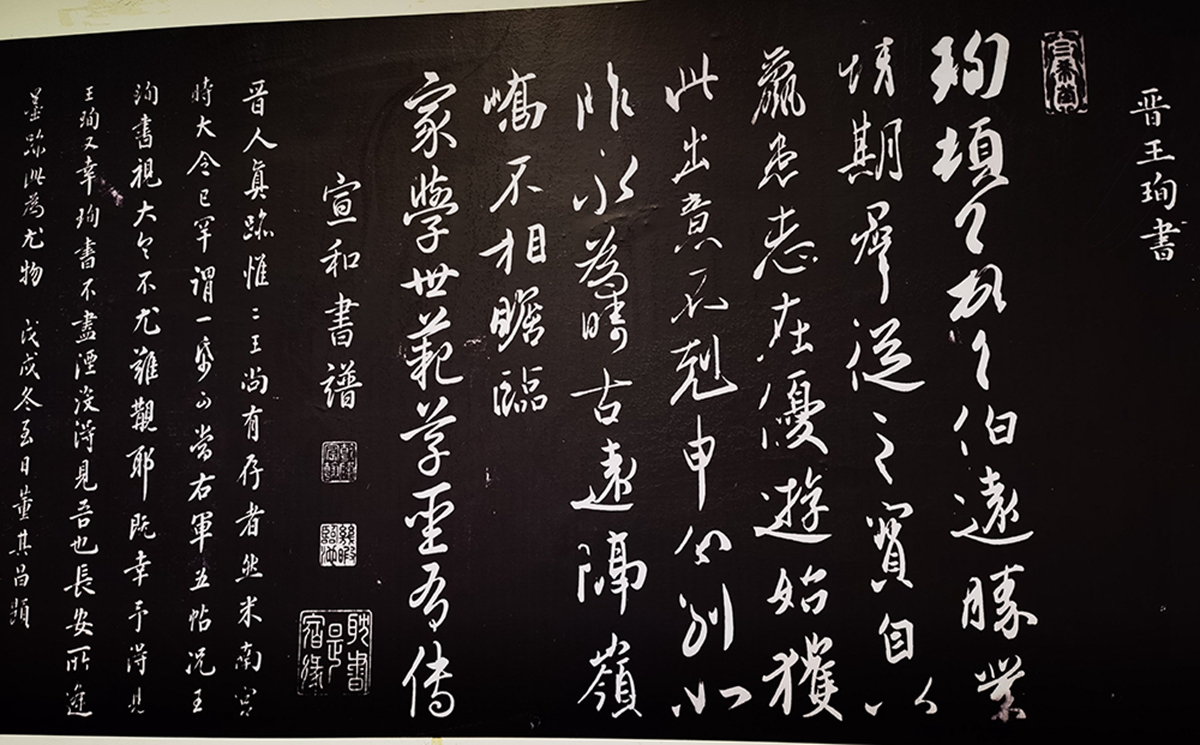 晉王珣書
珣頓首頓首伯遠勝業
情期群從之寶自以
羸患志在優遊始獲
此出意不剋申分別如
昨永為疇古遠隔嶺
嶠不相瞻臨
家學世範草聖有傳
宣和書譜
乾隆宸翰
幾暇臨池
耽書是宿緣
晉人真跡惟二王尚有存者然米南宮
時大令已罕謂一紙可當右軍五帖況王
珣書視大令不尤難覯耶既幸予得見
王珣又幸珣書不盡湮沒得見吾也長安所逢
墨跡此為尤物 戊戌冬至日董其昌題